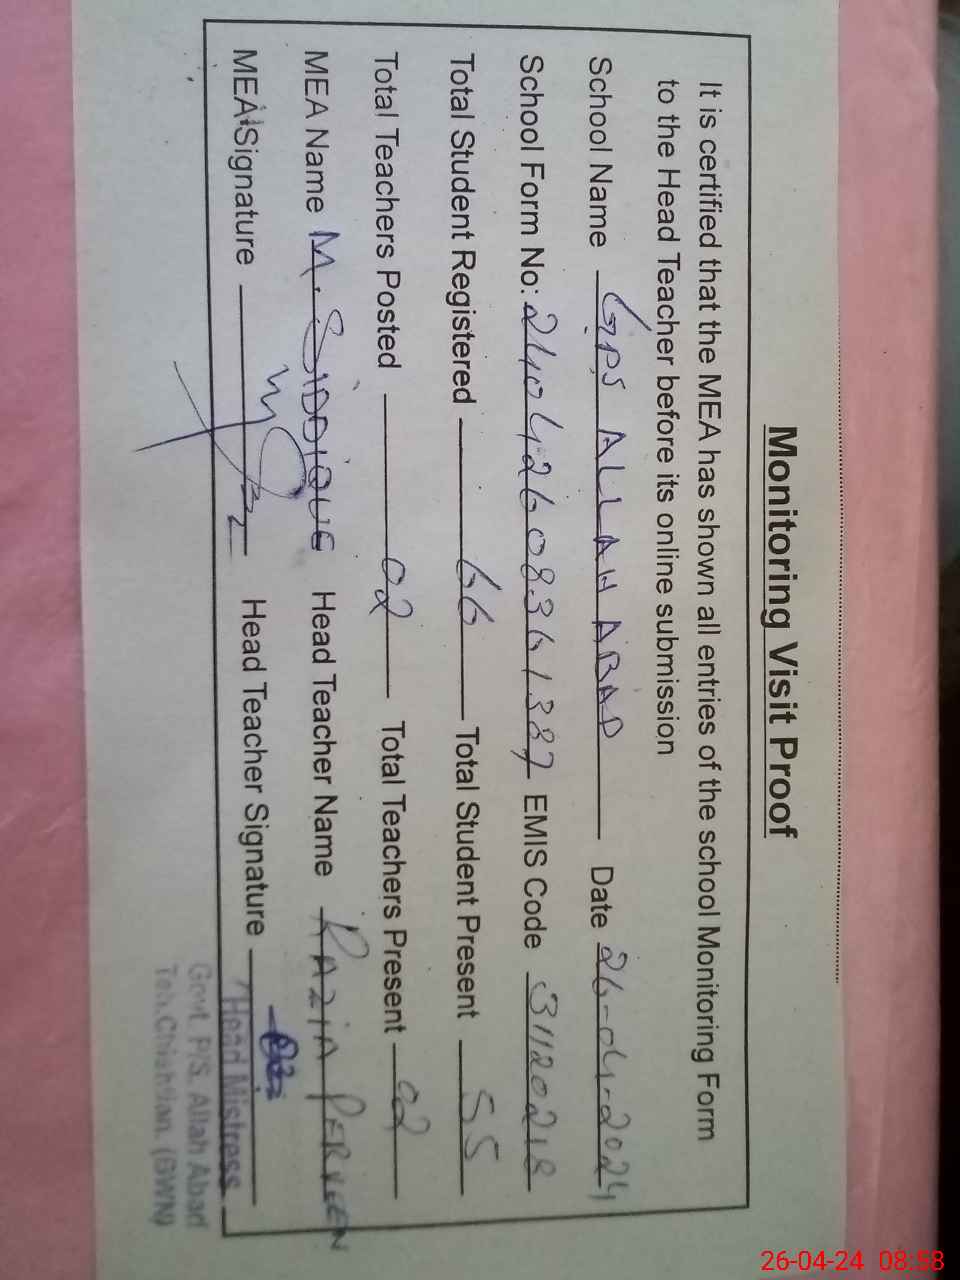 Monitoring Visit Proof
It is certified that the MEA has shown all entries of the school Monitoring Form
to the Head Teacher before its online submission
School Name GPS ALLAH ABAD Date 26-04-2024
School Form No: 24042608361387 EMIS Code 31120218
Total Student Registered 66 Total Student Present 55
Total Teachers Posted 02 Total Teachers Present 02
MEA Name M. SIDDIQUE Head Teacher Name RAZIA PERVEEN
MEA Signature Head Teacher Signature
Head Mistress
Govt. P/S. Allah Abad
Teh. Chishtian. (BWN)
26-04-24 08:58